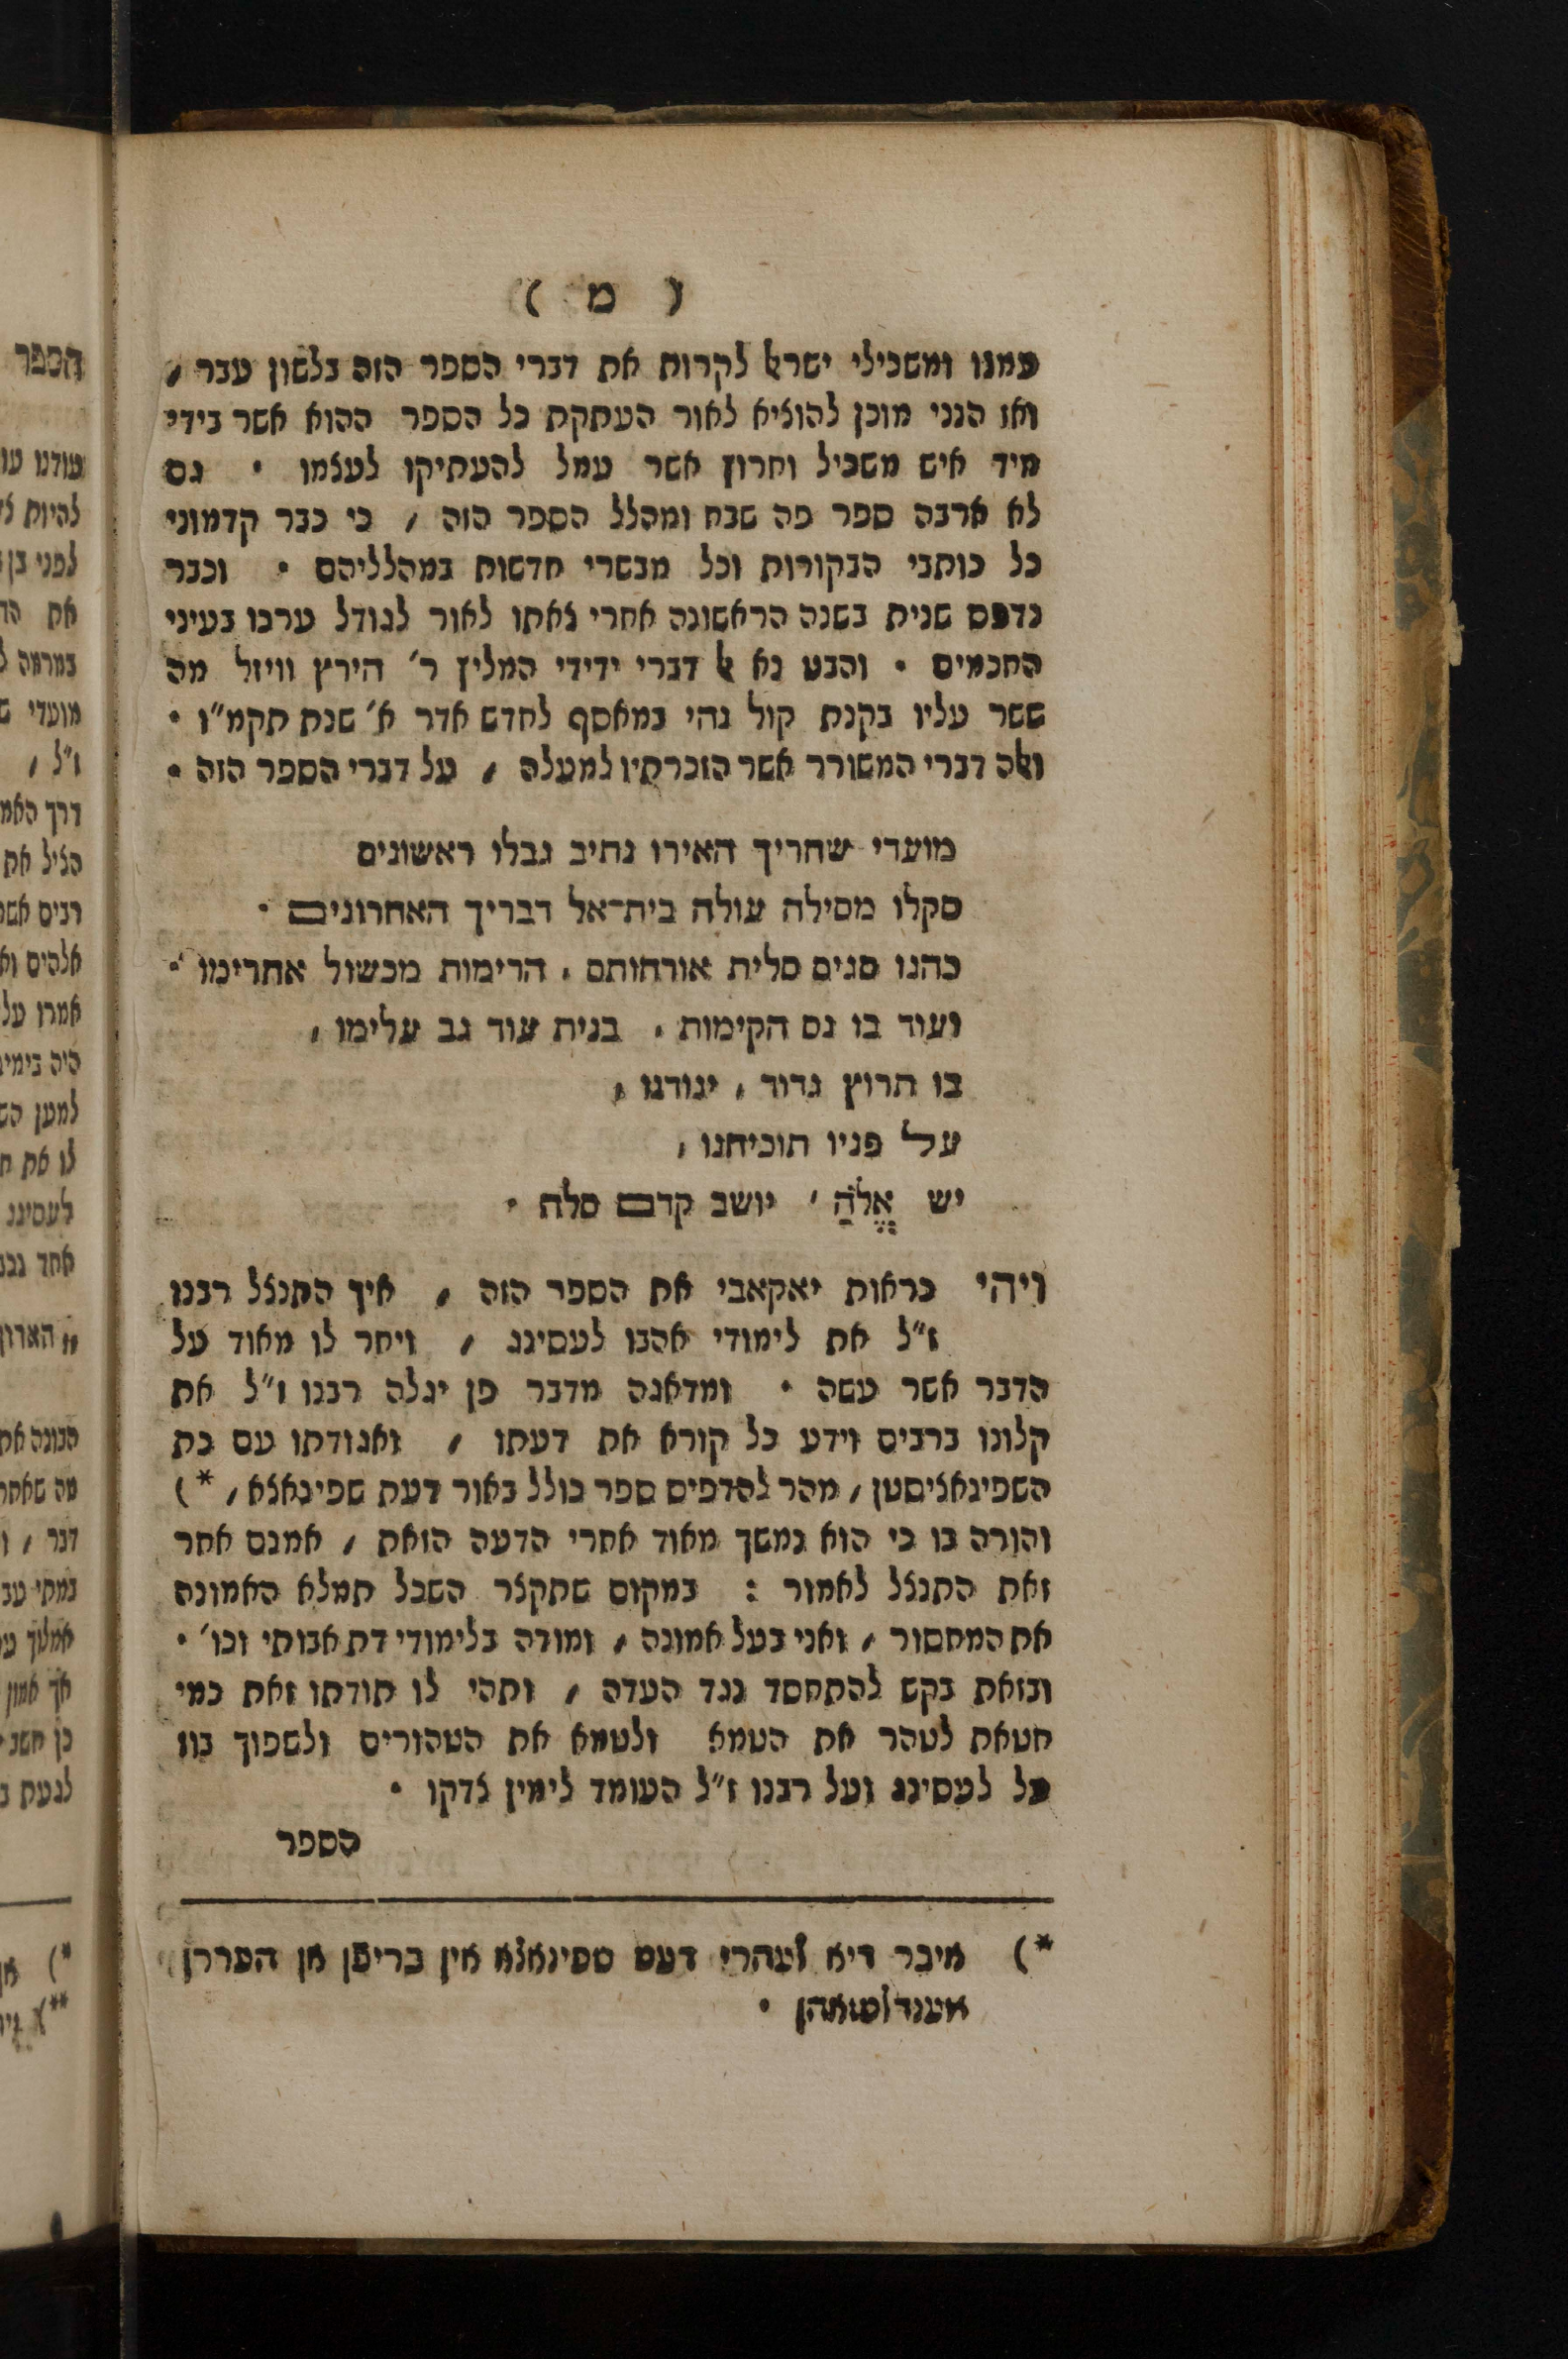 ( מ )
עמנו ומשכילי ישראל לקרות את דברי הספר הזה בלשון עבר ,
ואז הנני מוכן להוציא לאור העתקת כל הספר ההוא אשר בידי
מיד איש משכיל וחרוץ אשר עמל להעתיקו לעצמו · גם
לא ארבה ספר פה שבח ומהלל הספר הזה , כי כבר קדמוני
כל כותבי הבקורות וכל מבשרי חדשות במהלליהם · וכבר
נדפס שנית בשנה הראשונה אחרי צאתו לאור לגודל ערכו בעיני
החכמים · והבט נא אל דברי ידידי המליץ ר' הירץ וויזל מה
ששר עליו בקנת קול נהי במאסף לחדש אדר א' שנת תקמ"ו ·
ואלה דברי המשורר אשר הזכרתיו למעלה , על דברי הספר הזה ·
מועדי שחריך האירו נתיב גבלו ראשונים
סקלו מסילה עולה בית־אל דבריך האחרונים ·
כהנו סגים סלית אורחותם , הרימות מכשול אחרימו ·
ועוד בו נס הקימות , בנית עוד גב עלימו ,
בו תרוץ גדוד , יגודנו ,
על פניו תוכיחנו ,
יש אֱלֹהַּ , יושב קדם סלה ·
ויהי כראות יאקאבי את הספר הזה , איך התנצל רבנו
ז"ל את לימודי אהבו לעסינג , ויחר לו מאוד על
הדבר אשר עשה · ומדאגה מדבר פן יגלה רבנו ז"ל את
קלונו ברבים וידע כל קורא את דעתו , ואגודתו עם כת
השפינאציסטן , מהר להדפיס ספר כולל באור דעת שפינאצא , *)
והורה בו כי הוא נמשך מאוד אחרי הדעה הזאת , אמנם אחר
זאת התנצל לאמור : במקום שתקצר השכל תמלא האמונה
את המחסור , ואני בעל אמונה , ומודה בלימודי דת אבותי וכו' ·
ובזאת בקש להתחסד נגד העדה , ותהי לו תודתו זאת כמי
חטאת לטהר את הטמא ולטמא את הטהורים ולשפוך בוז
על לעסינג ועל רבנו ז"ל העומד לימין צדקו ·
הספר
*) איבר דיא לעהרי דעס ספינאצא אין בריפן אן הפררן
מענדלסזאהן ·
הספר